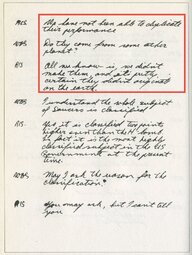 WBS: We have not been able to duplicate
their performance
WBS: Do they come from some other
planet?
RIS: All we know is, we didn't
make them, and it's pretty
certain they didn't originate
on the earth.
WBS: I understand the whole subject
of saucers is classified.
RIS: Yes, it is classified two points
higher even than the H-bomb.
In fact it is the most highly
classified subject in the US
Government at the present
time.
WBS: May I ask the reason for the
classification?
RIS: You may ask, but I can't tell
you.